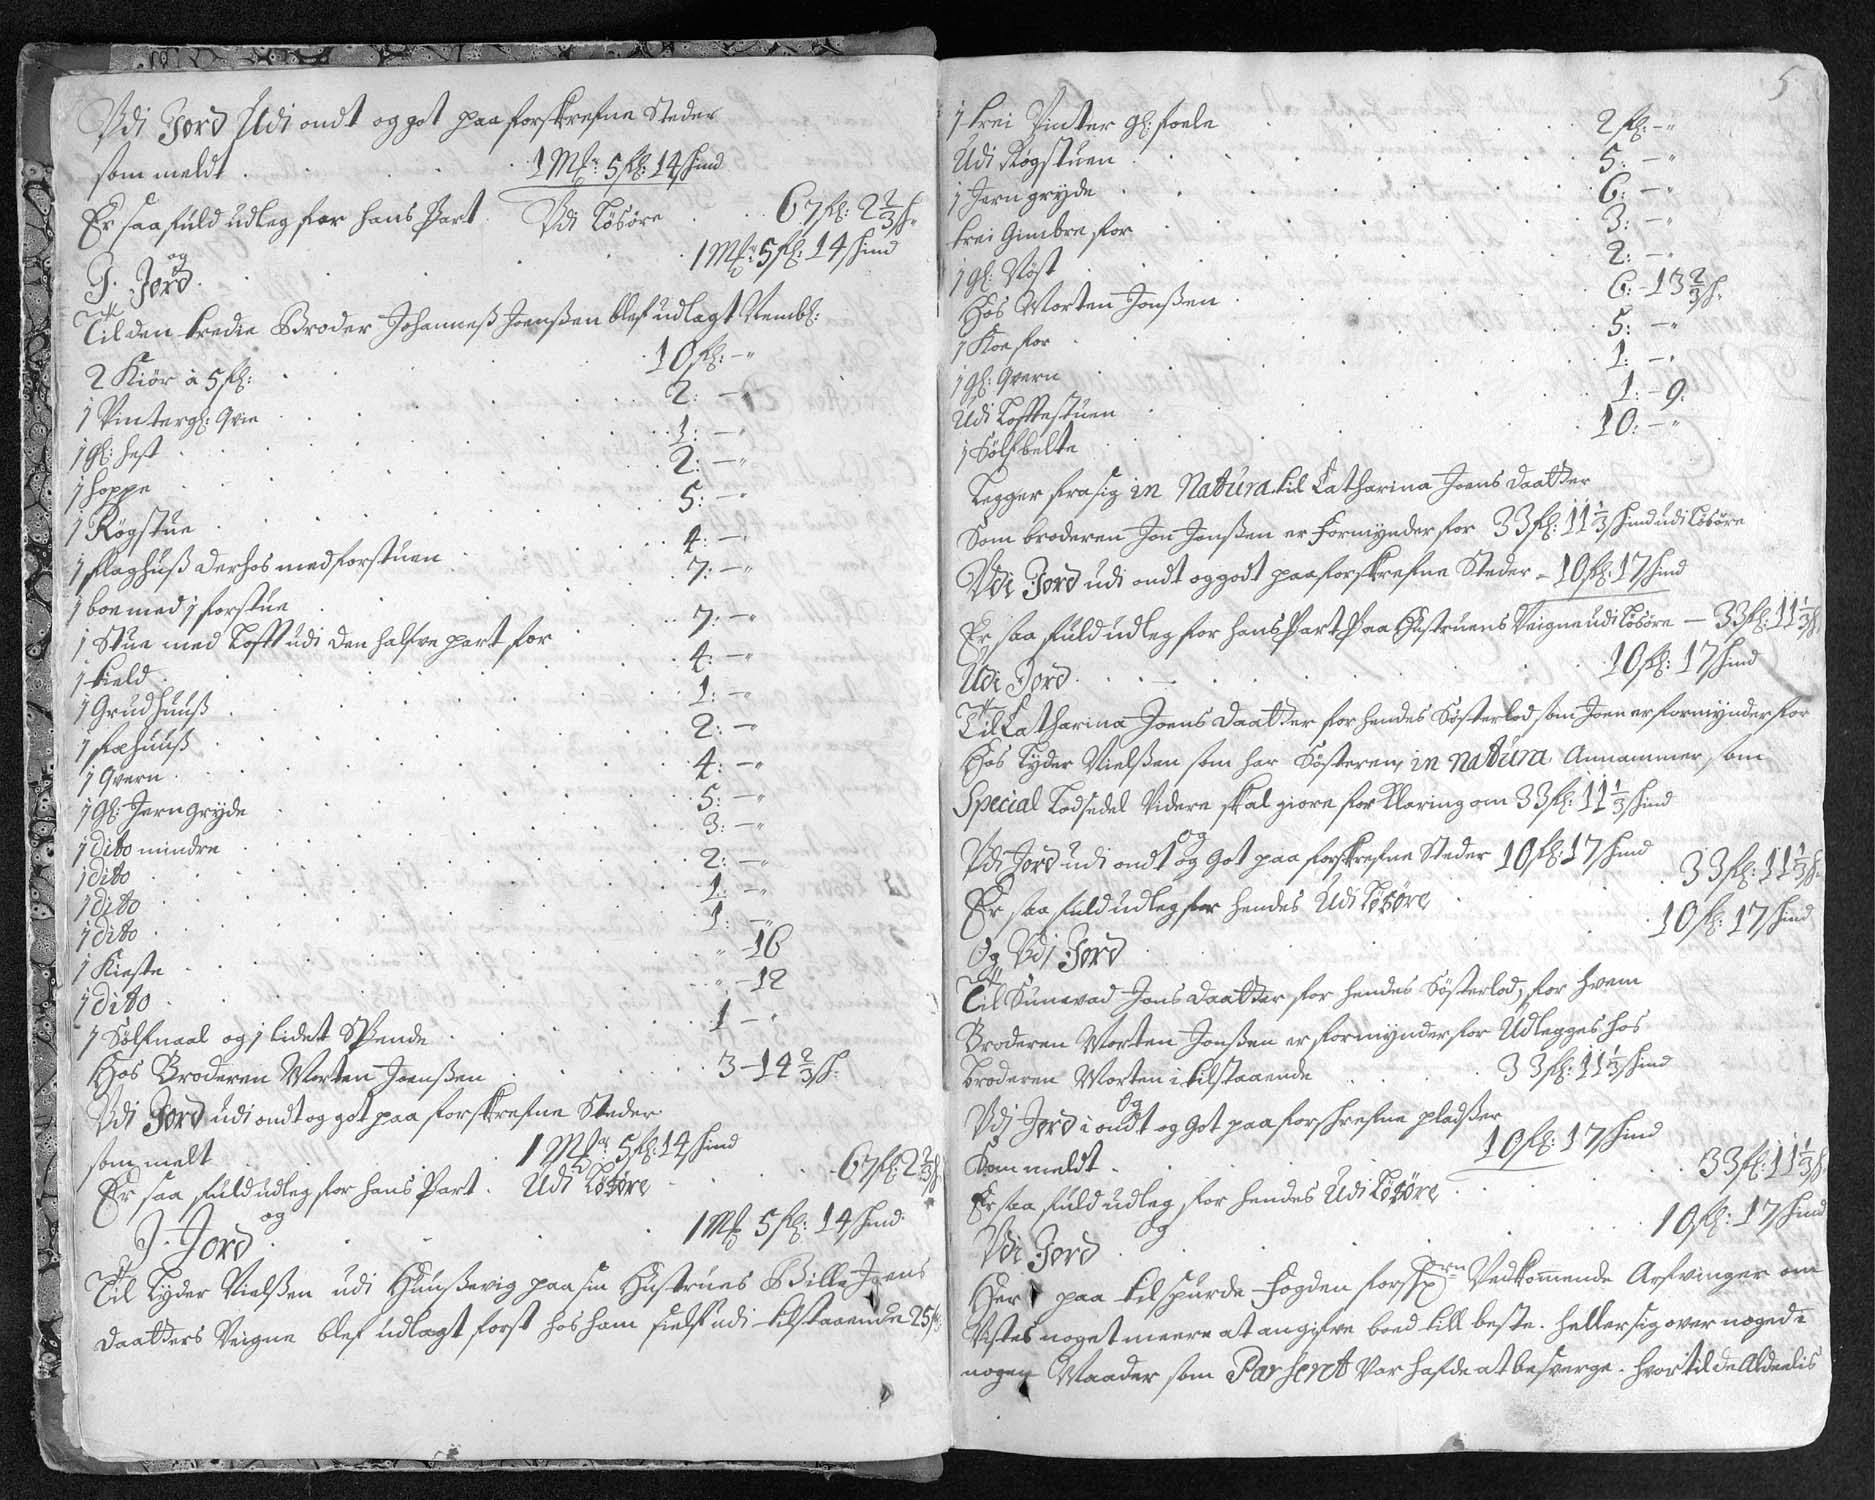 Vdi Jord Udi ondt og got paa forskrefne Steder
som meldt . . . 1 Mk: 5 fl: 14 skind
Er saa fuld udleg for hans Part. Vdi Løsøre . . 67 fl: 2 2/3 sk:
og
J. Jord . . . 1 Mk: 5 fl: 14 skind
Til den tredie Broder Johanneß Joensßen blef udlagt Nembl:
2 Kiör à 5 fl: . . . 10 fl: -"
1 Vintergl: Qvie . . . 2: -"
1 gl: hest . . . 1: -"
1 hoppe . . . 2: -"
1 Røgstue . . . 5: -"
1 slaghuß derhos med forstuen . . . 4: -"
1 boe med 1 forstue . . . 7: -"
1 Stue med Lofft udi den halfve part for . . . 7: -"
1 kield . . . 4: -"
1 Grudhuuß . . . 1: -"
1 fæhuuß . . . 2: -"
1 Qvern . . . 4: -"
1 gl: Jern gryde . . . 5: -"
1 dito mindre . . . 3: -"
1 dito . . . 2: -"
1 dito . . . 1: -"
1 dito . . . 1: -"
1 Kieste . . . " - 16
1 dito . . . " - 12
1 Sølfmaal og 1 lidet Spende . . . 1 -"
Hos Broderen Morten Joensßen . . . 3 - 14 2/3 sk:
Vdi Jord udi ondt og got paa forskrefne Steder
som melt . . . 1 Mk: 5 fl: 14 skind
Er saa fuld udleg for hans Part. Udi Løsøre . . 67 fl: 2 2/3 sk
og
J. Jord . . . 1 Mk 5 fl: 14 skind
Til Tyder Nielsßen udi Hunsßevig paa sin Hustrues Bille Joens
daatters Veigne blef udlagt forst hos ham sielf udi tilstaaende 25 fl:
5
1 trei Vinter gl: foele . . . 2 fl: -"
Udi Røgstuen . . . 5: -"
1 Jern gryde . . . 6: -"
trei Gimbre for . . . 3: -"
1 gl: Nöst . . . 2: -"
Hos Morten Jonsßen . . . 6: - 13 2/3 sk:
1 Koe for . . . 5: -"
1 gl: Qvern . . . 1: -"
Udi Lofftestuen . . . 1: - 9.
1 Sølfbelte . . . 10: -"
Legger fra sig in Natura til Catharina Joens daatter
Som broderen Jon Jonsßen er Formynder for 33 fl: 11 1/3 skind udi Løsøre
Vdi Jord udi ondt og godt paa forskrefne Steder - 10 fl: 17 skind
Er saa fuld udleg for hans Part Paa Hustruens Veigne udi Løsøre - 33 fl: 11 1/3 sk
Udi Jord . . . 10 fl: 17 skind
Til Catharina Joens daatter for hendes Søsterlod som Joen er formynder for
Hos Tyder Nielsßen som har Søsteren, in natura Annammer, som
Special Lodsedel Videre skal giøre forklaring om 33 fl: 11 1/3 skind
og
Vdi Jord udi ondt og Got paa forskrefne Steder 10 fl: 17 skind
Er saa fuld udleg for hendes Udi Løsøre . . . 33 fl: 11 1/3 sk
Og Vdi Jord . . . 10 fl: 17 skind
Til Sunevad Jons daatter for hendes Søsterlod, for hvem
Broderen Morten Jonsßen er formynder for Udlegges hos
broderen Morten i tilstaaende . . . 33 fl: 11 1/3 skind
Og
Vdi Jord i ondt og Got paa forschrefne pladsßer
Som meldt . . . 10 fl: 17 skind
Er saa fuld udleg for hendes Udi Løsøre . . . 33 fl: 11 1/3 sk
og
Vdi Jord . . . 10 fl: 17 skind
Her paa tilspurde Fogden Vedkommende Arfvinger om
Vistes noget meere at angifve boed till beste. heller sig over noged i
nogen Maader som Passerit Var hafde at besverge. hvortil de Aldeelis